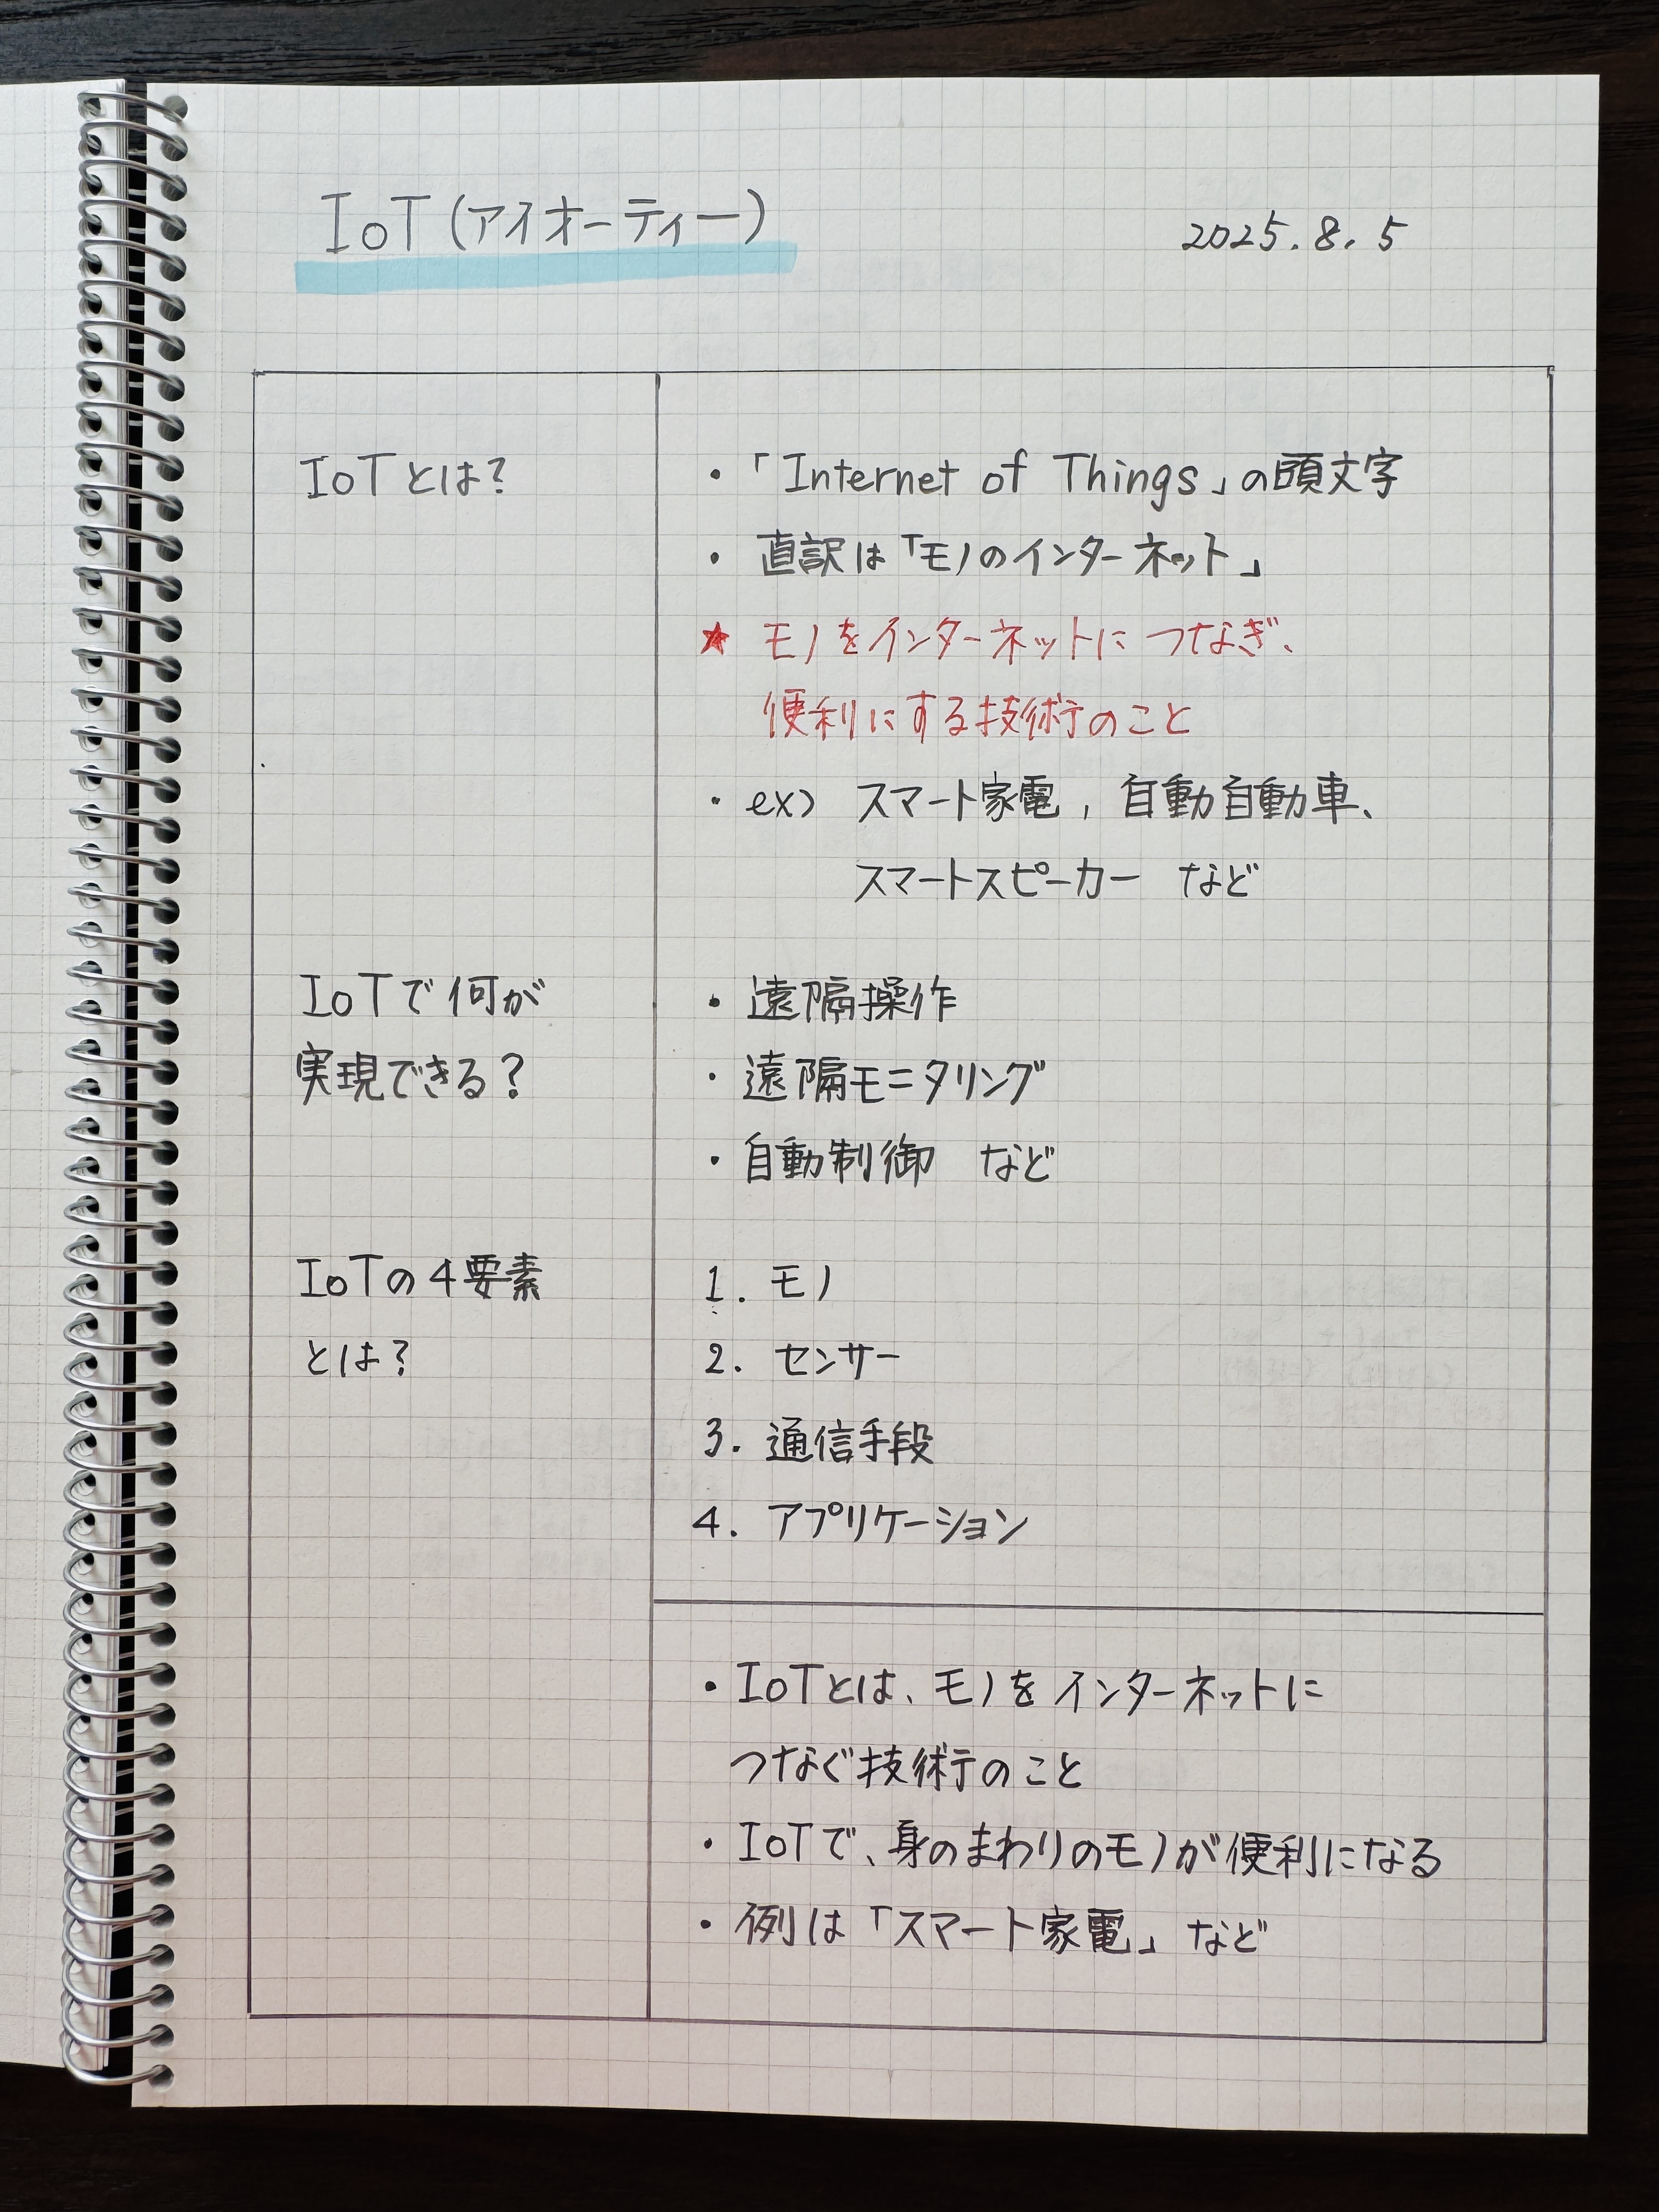 IoT(アイオーティー)
2025.8.5
IoTとは?
・「Internet of Things」の頭文字
・直訳は「モノのインターネット」
★ モノをインターネットに つなぎ、
便利にする技術のこと
・ex) スマート家電, 自動自動車、
スマートスピーカー など
IoTで何が
実現できる?
・遠隔操作
・遠隔モニタリング
・自動制御 など
IoTの4要素
とは?
1. モノ
2. センサー
3. 通信手段
4. アプリケーション
・IoTとは、モノをインターネットに
つなぐ技術のこと
・IoTで、身のまわりのモノが便利になる
・例は「スマート家電」など